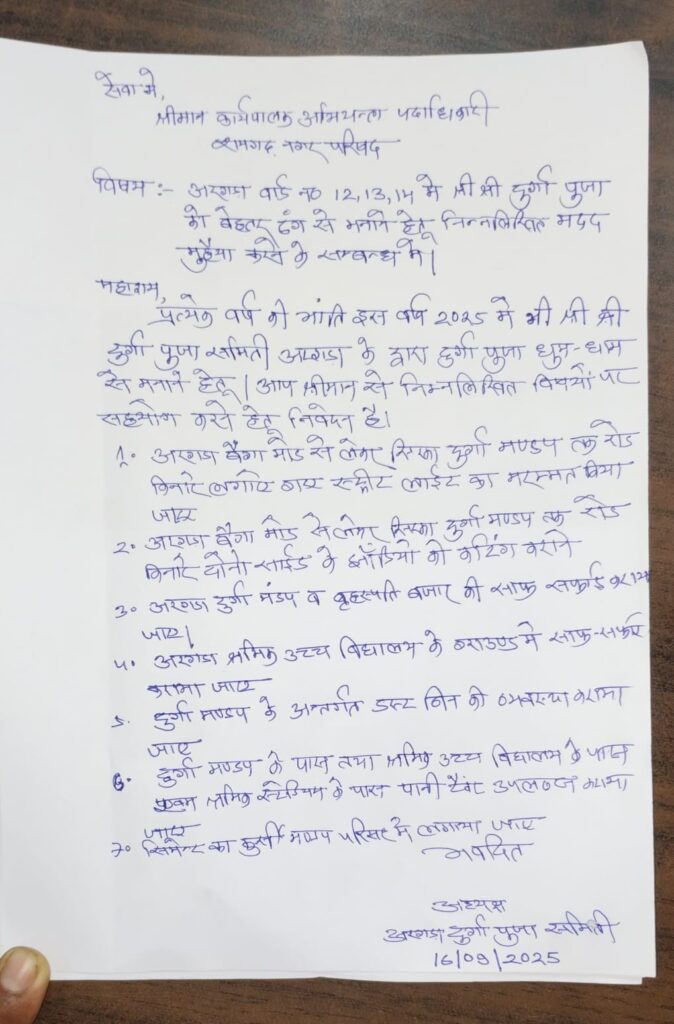 सेवा मे,
श्रीमान कार्यपालक अभियन्ता पदाधिकारी
रामगढ़ नगर परिषद
विषय :- अरगडा वार्ड नं0 12,13,14 मे श्री श्री दुर्गा पुजा
को बेहतर ढंग से मनाने हेतू निन्नलिखित मदद
मुहैया करने के सम्बन्ध मे।
महाशय,
प्रत्येक वर्ष की भांति इस वर्ष 2025 मे भी श्री श्री
दुर्गा पुजा समिती अरगडा के द्वारा दुर्गा पुजा धुम-धाम
से मनाने हेतू। आप श्रीमान से निम्नलिखित विषयों पर
सहयोग करने हेतू निवेदन है।
1. अरगडा चैगा मोड से लेकर सिरका दुर्गा मण्डप तक रोड
किनारे लगाए गए स्ट्रीट लाईट का मरम्मत किया
जाए
2. अरगडा चैगा मोड से लेकर सिरका दुर्गा मण्डप तक रोड
किनारे दोनो साईड के झाँडियो की कटिंग कराने
3. अरगडा दुर्गा मंडप व बृहस्पति बजार की साफ सफाई कराया
जाए।
4. अरगडा श्रमिक उच्च विद्यालय के ग्राउण्ड मे साफ-सफाई
कराया जाए
5. दुर्गा मण्डप के अन्तर्गत डस्ट बिन की व्यवस्था कराया
जाए
6. दुर्गा मण्डप के पास तथा श्रमिक उच्च विद्यालय के पास
एवम श्रमिक स्टेडियम के पास पानी टैंकर उपलब्ध कराया
जाए
7. सिमेन्ट का कुर्सी मण्डप परिसर मे लगाया जाए
भवदित
अध्यक्ष
अरगडा दुर्गा पुजा समिती
16/09/2025